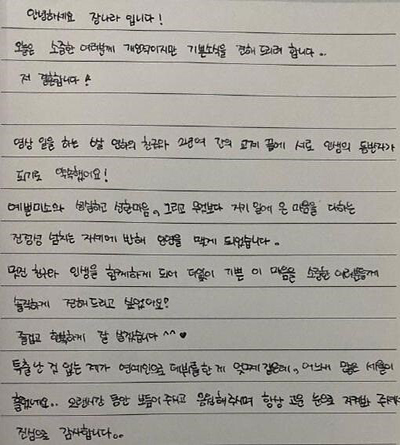 안녕하세요 장나라 입니다!
오늘은 소중한 여러분께 개인적이지만 기쁜소식을 전해 드리려 합니다..
저 결혼합니다!
영상 일을 하는 6살 연하의 친구와 2년여 간의 교제 끝에 서로 인생의 동반자가
되기로 약속했어요!
예쁜미소와 성실하고 선한마음, 그리고 무엇보다 자기 일에 온 마음을 다하는
진정성 넘치는 자세에 반해 인연을 맺게 되었습니다.
멋진 친구와 인생을 함께하게 되어 더없이 기쁜 이 마음을 소중한 여러분들께
솔직하게 전해드리고 싶었어요?
즐겁고 행복하게 잘 살겠습니다 ^^ ♥
특출난 것 없는 제가 연예인으로 데뷔를한 게 엊그제 같은데, 어느새 많은 세월이
흘렀네요.. 오랜시간 동안 보듬어주시고 응원해주시며 항상 고운 눈으로 지켜봐 주셔서
진심으로 감사합니다..